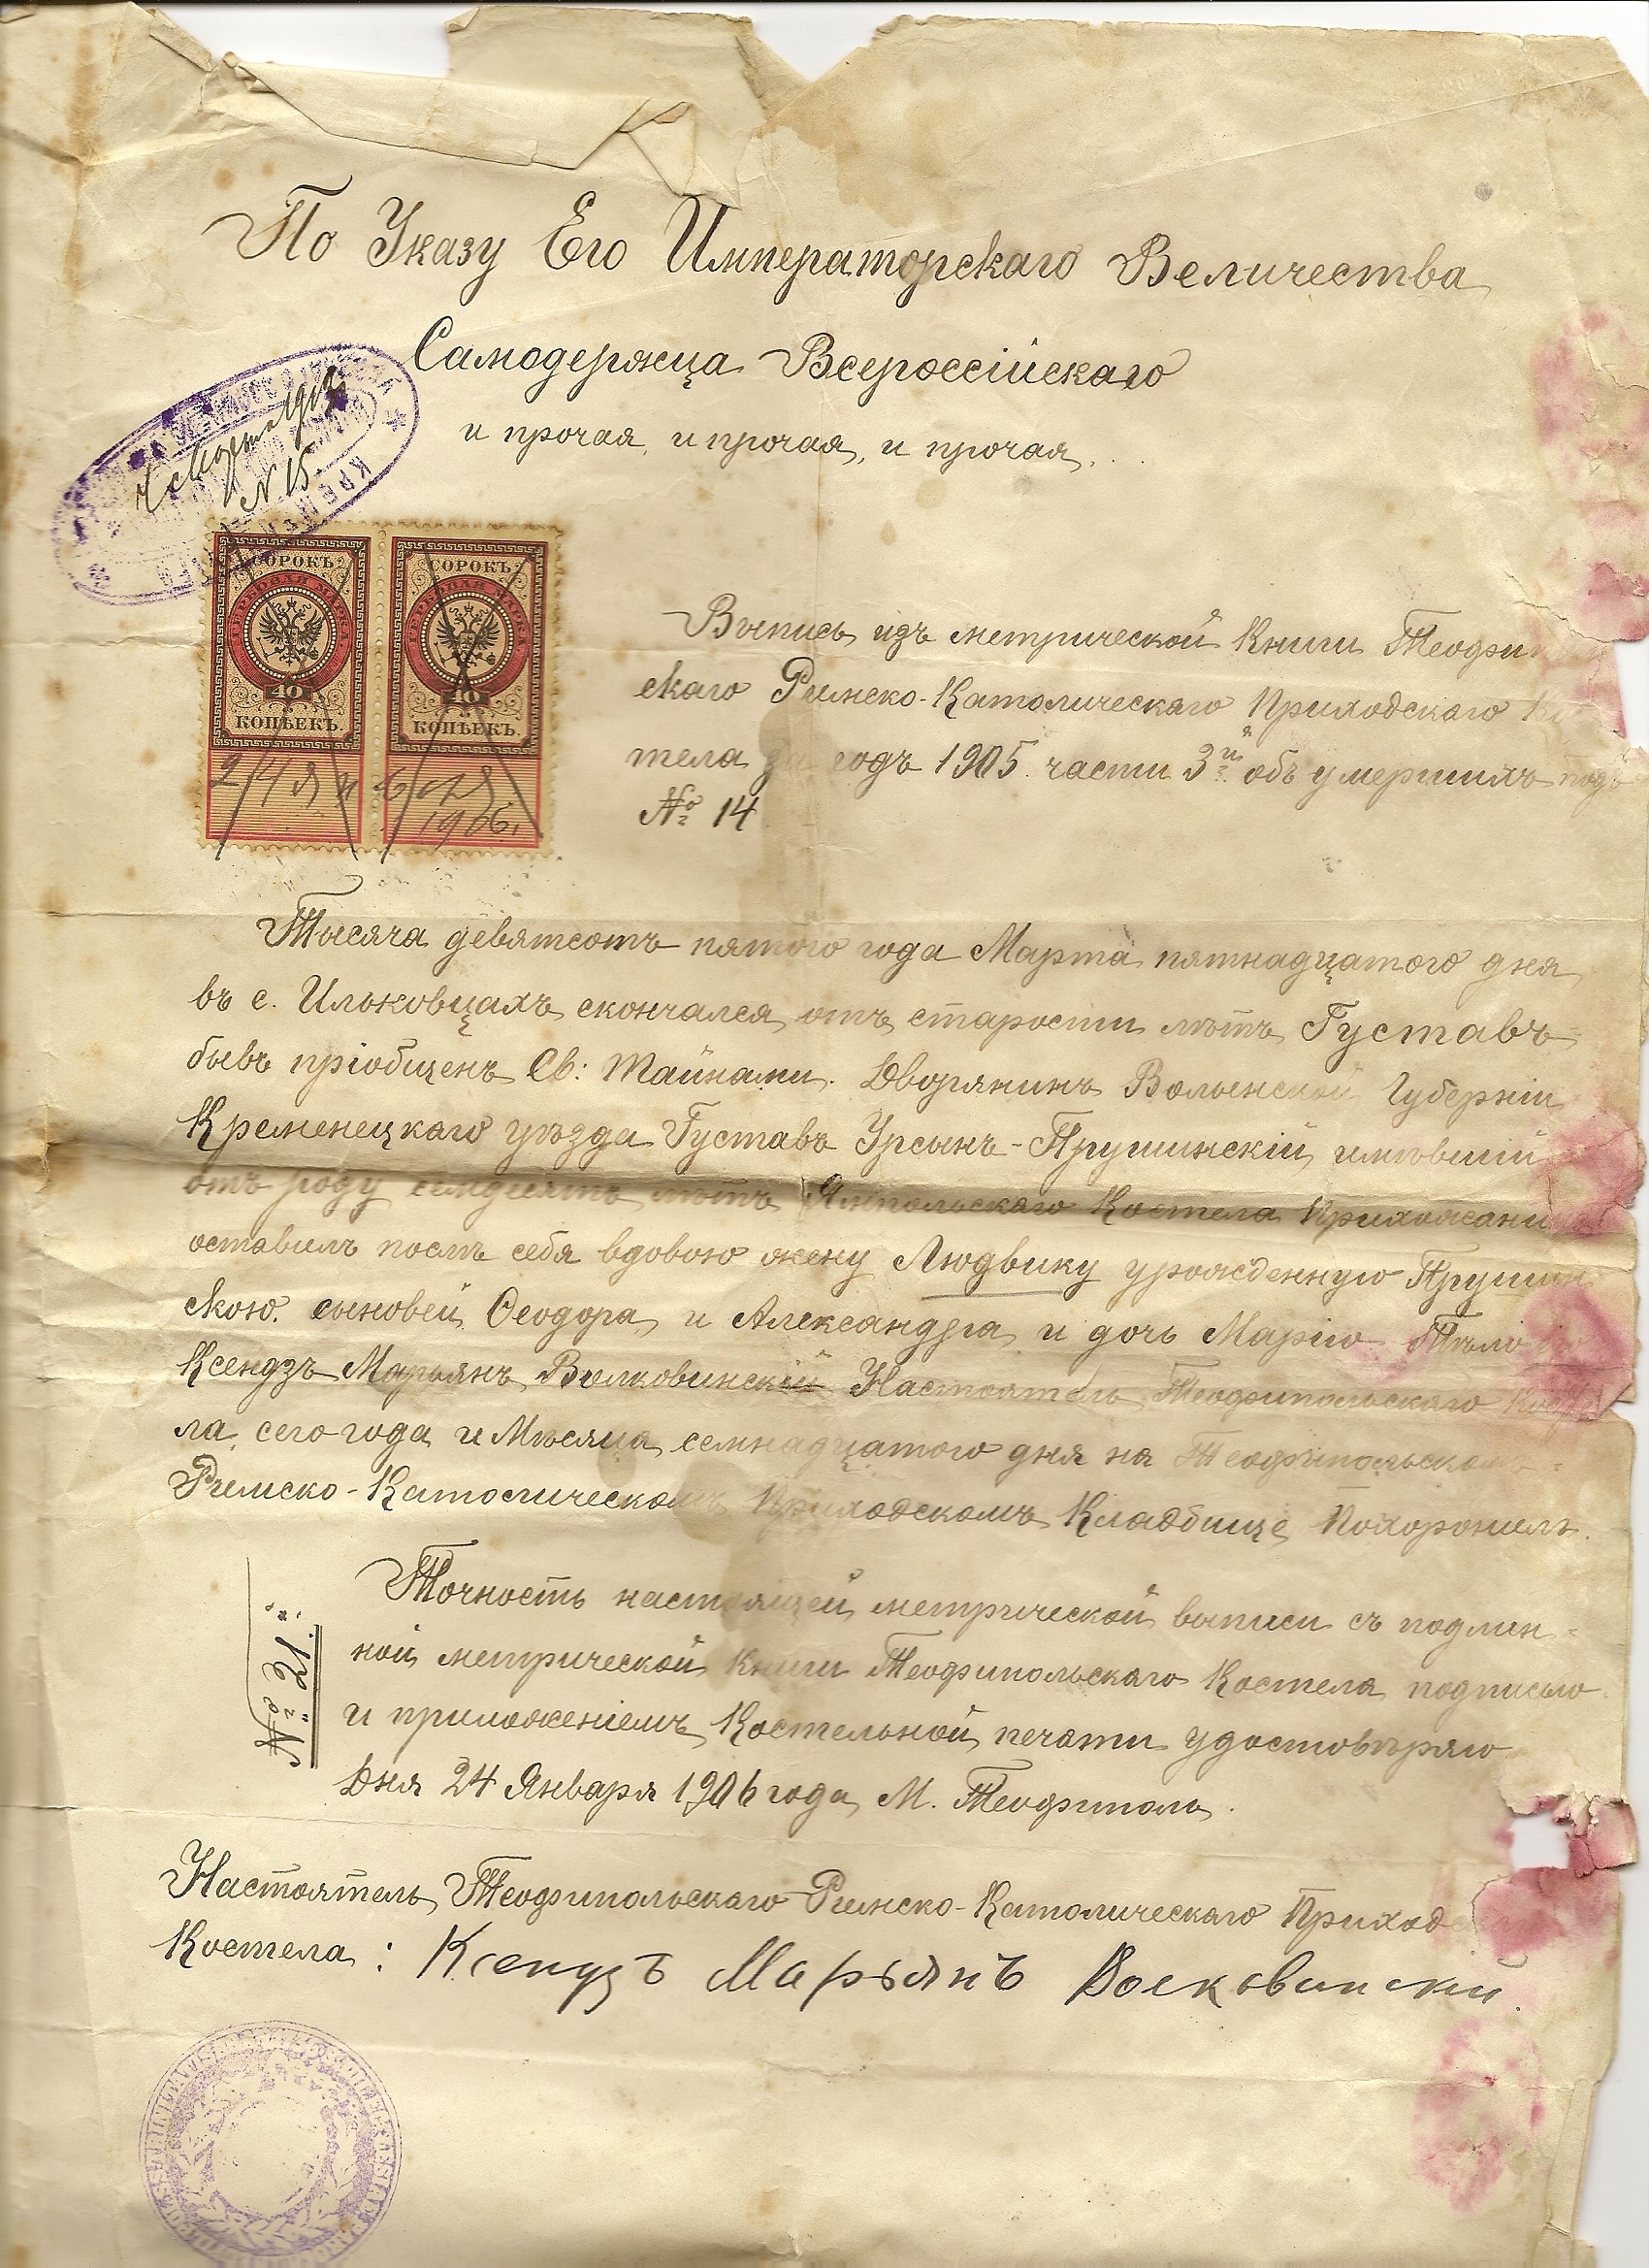 По Указу Его Императорскаго Величества
Самодержца Всероссійскаго
и прочая, и прочая, и прочая.
N 15
СОРОКЪ СОРОКЪ
ГЕРБОВАЯ МАРКА ГЕРБОВАЯ МАРКА
40 40
КОПѢЕКЪ. КОПѢЕКЪ.
24 Я
1906.
Выпись изъ метрической Книги
скаго Римско-Католическаго Приходскаго
тела за годъ 1905 части 3й объ умершихъ подъ
№ 14
Тысяча девятсотъ пятого года Марта пятнадцатого дня
въ с. Ильковцахъ скончался отъ старости лѣтъ Густавъ
бывъ пріобщенъ Св: Тайнами. Дворянинъ Волынской Губерніи
Кременецкаго уѣзда Густавъ Урсынъ-Прушинскій, имѣвшій
отъ роду семдесятъ лѣтъ Ямпольскаго Костела
оставилъ послѣ себя вдовою жену Людвику урожденную Прушин
скою. сыновей Ѳеодора и Александра и дочь Марію Тѣло
Ксендзъ Марьянъ Волковинскій Настоятель Теофипольскаго Косте
ла, сего года и Мѣсяца семнадцатого дня на Теофипольскомъ
Римско-Католическомъ Приходскомъ Кладбище Похоронилъ.
Точность настоящей метрической выписи съ подлин=
ной метрической Книги Теофипольскаго Костела подписью
и приложеніемъ Костельной печати удостовѣряю
Дня 24 Января 1906 года М. Теофиполь.
№ 21.
Настоятель Теофипольскаго Римско-Католическаго
Костела: Ксендзъ Марьянъ Волковинскій.